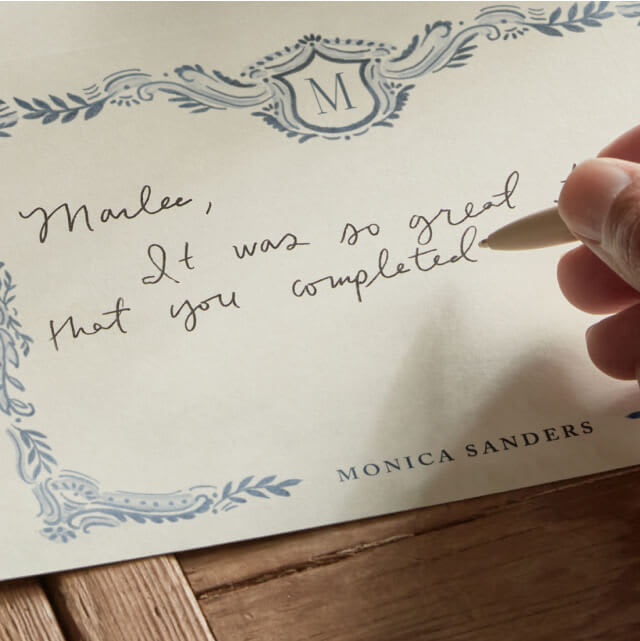 M
Marlee,
It was so great
that you completed
MONICA SANDERS